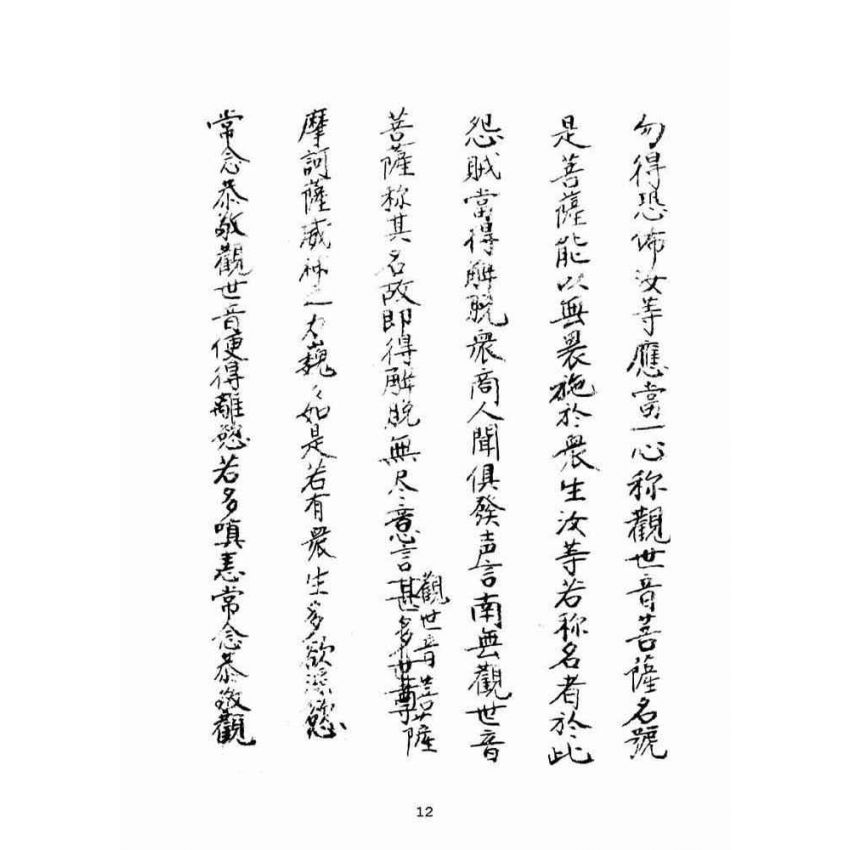 勿得恐怖汝等應當一心称觀世音菩薩名號
是菩薩能以無畏施於衆生汝等若称名者於此
怨賊當得解脱衆商人聞俱發声言南無觀世音
菩薩称其名故即得解脱無尽意言甚多世尊
觀世音菩薩
摩訶薩威神之力巍々如是若有衆生多慾
常念恭敬觀世音便得離慾若多嗔恚常念恭敬觀
12